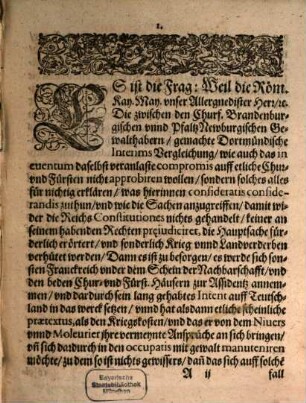 1.
ES ist die Frag: Weil die Röm.
Kay. May. vnser Allergnedister Herr/ ꝛc.
Die zwischen den Churf. Brandenbur-
gischen vnnd Pfaltz Newburgischen Ge-
walthabern / gemachte Dortmündische
Interims Vergleichung / wie auch das in
euentum daselbst veranlaste compromis auff etliche Chur
vnd Fürsten nicht approbiren wollen / sondern solches alles
für nichtig erklären / was hierinnen consideratis conside-
randis zuthun / vnd wie die Sachen anzugreiffen / damit wi-
der die Reichs Constitutiones nichts gehandelt / keiner an
seinem habenden Rechten præjudiciret, die Hauptsache für-
derlich erörtert / vnd sonderlich Krieg vnnd Landverderben
verhütet werden / Dann es ist zu besorgen / es werde sich son-
sten Franckreich vnder dem Schein der Nachbarschafft / vnd
den beden Chur vnd Fürst. Häusern zur Assistentz annem-
men / vnd dardurch sein lang gehabtes Intent auff Teutsch-
land in das werck setzen / vnnd hat als dann etliche scheinliche
prætextus, als den Kriegskosten / vnd das er von dem Niuers
vnnd Moleurier jhre vermeynte Ansprüche an sich bringen /
vñ sich dardurch in den occupatis mit gewalt manuteniren
möchte / zu dem so ist nichts gewissers / dañ das sich auff solchẽ
A ij fall
Bayerische
Staatsbibliothek
München